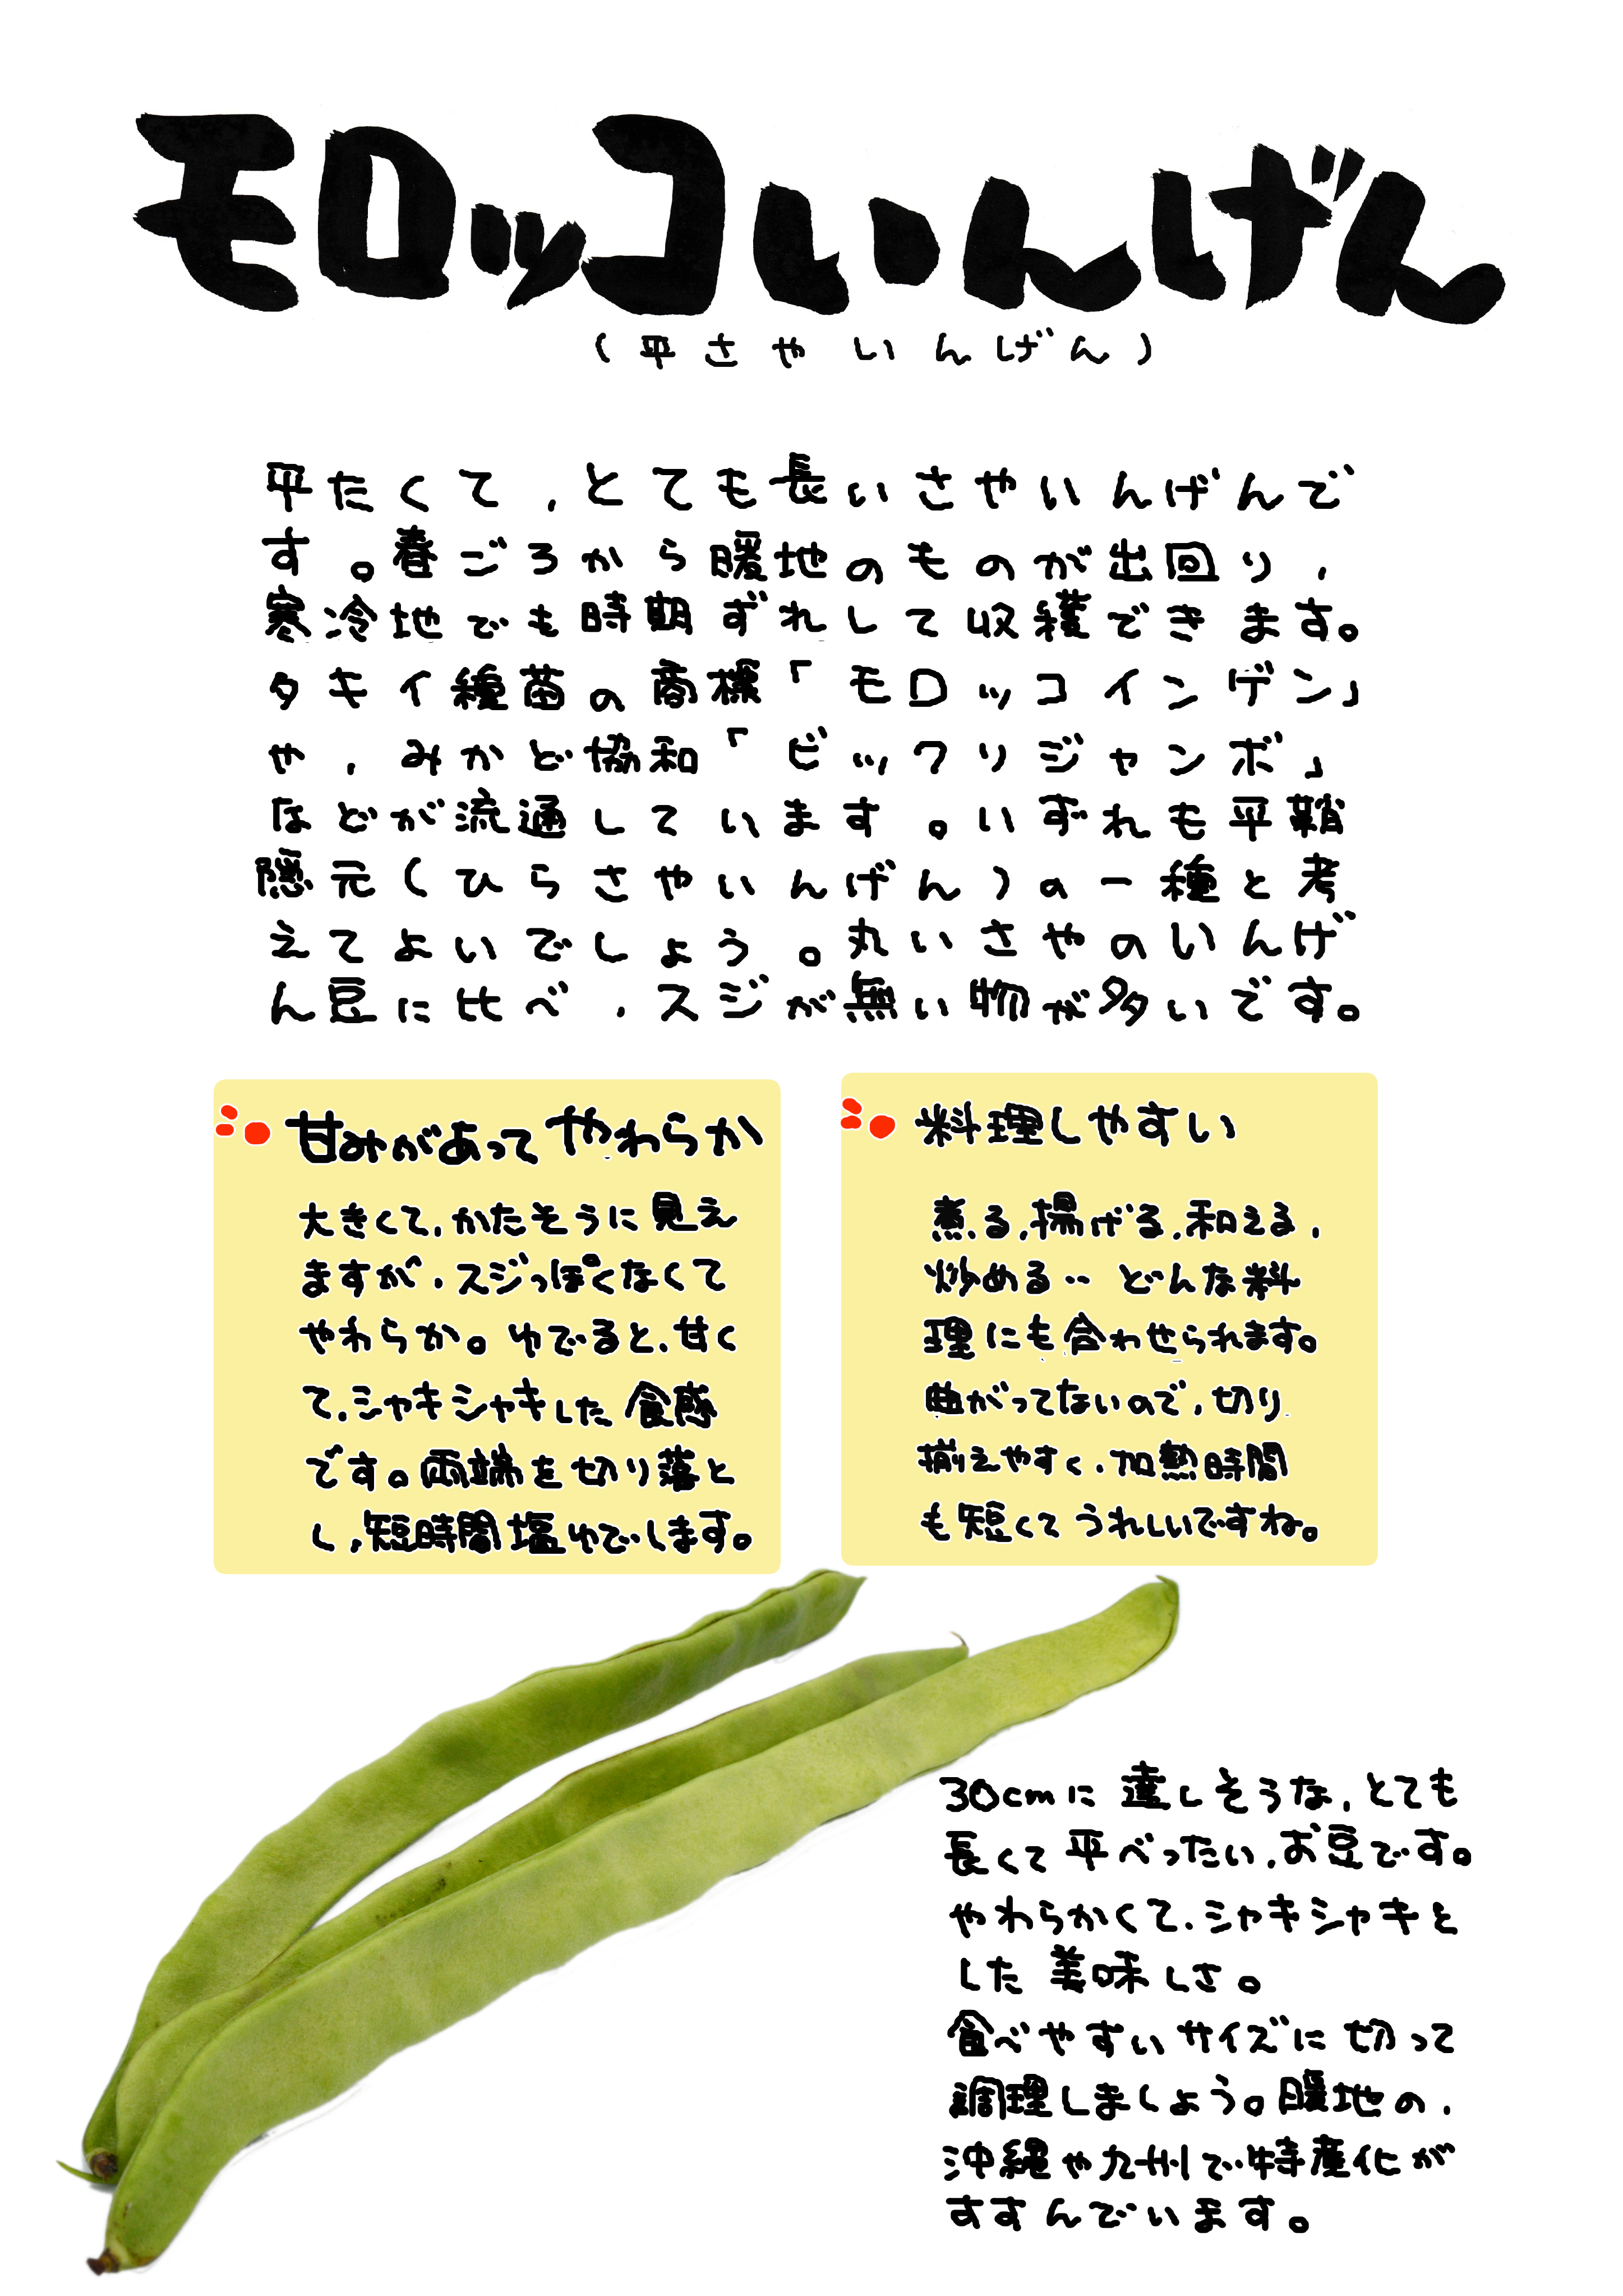 モロッコいんげん
(平さやいんげん)
平たくて,とても長いさやいんげんで
す。春ごろから暖地のものが出回り,
寒冷地でも時期ずれして収穫できます。
タキイ種苗の商標「モロッコインゲン」
や,みかど協和「ビックリジャンボ」
などが流通しています。いずれも平鞘
隠元(ひらさやいんげん)の一種と考
えてよいでしょう。丸いさやのいんげ
ん豆に比べ,スジが無い物が多いです。
甘みがあってやわらか
大きくて,かたそうに見え
ますが,スジっぽくなくて
やわらか。ゆでると,甘く
て,シャキシャキした食感
です。両端を切り落と
し,短時間塩ゆでします。
料理しやすい
煮る,揚げる,和える,
炒める‥どんな料
理にも合わせられます。
曲がってないので,切り
揃えやすく,加熱時間
も短くてうれしいですね。
30cmに達しそうな,とても
長くて平べったい,お豆です。
やわらかくて,シャキシャキと
した美味しさ。
食べやすいサイズに切って
調理しましょう。暖地の,
沖縄や九州で特産化が
すすんでいます。